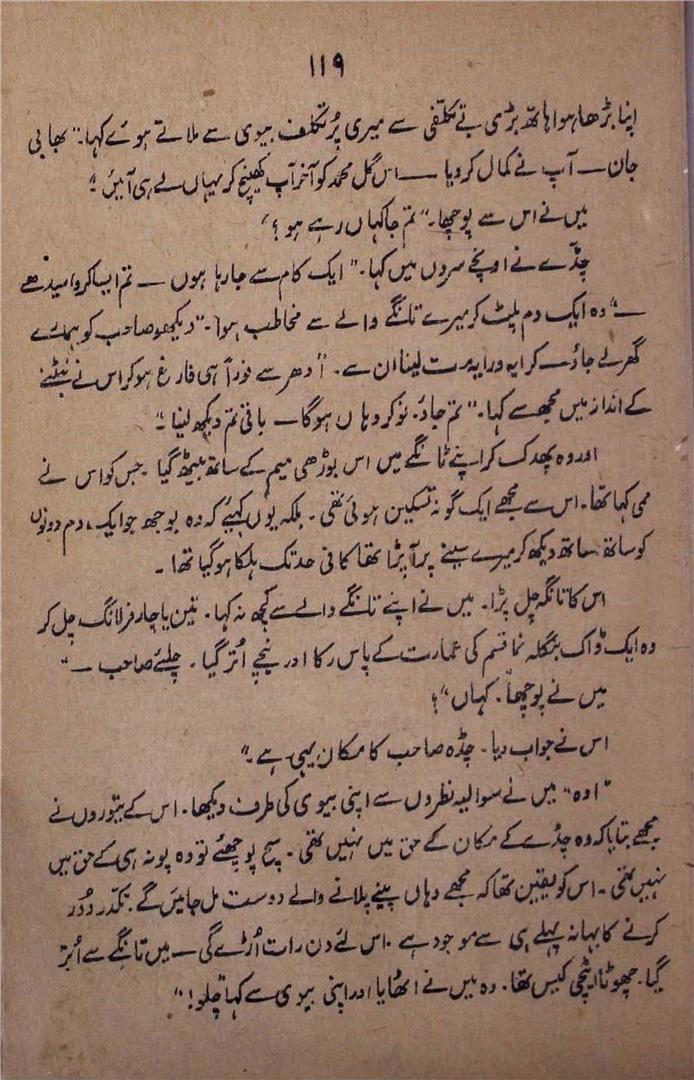 ۱۱۹
اپنا بڑھا ہوا ہاتھ بڑی بے تکلفی سے میری پُر تکلف بیوی سے ملاتے ہوئے کہا۔ "بھابی
جان — آپ نے کمال کر دیا — اس گل محمد کو آخر آپ کھینچ کر یہاں لے ہی آئیں"
میں نے اس سے پوچھا۔ "تم جا کہاں رہے ہو؟"
چڈّے نے اونچے سروں میں کہا۔ "ایک کام سے جا رہا ہوں — تم ایسا کرو سیدھے
—" وہ ایک دم پلٹ کر میرے تانگے والے سے مخاطب ہوا۔ "دیکھو صاحب کو ہمارے
گھر لے جاؤ — کرایہ ورایہ مت لینا ان سے۔" اُدھر سے فوراً ہی فارغ ہو کر اس نے نبٹنے
کے انداز میں مجھ سے کہا۔ "تم جاؤ۔ نوکر وہاں ہوگا — باقی تم دیکھ لینا"
اور وہ پھدک کر اپنے ٹانگے میں اس بوڑھی میم کے ساتھ بیٹھ گیا جس کو اس نے
ممی کہا تھا۔ اس سے مجھے ایک گونہ تسکین ہوئی تھی۔ بلکہ یوں کہیئے کہ وہ بوجھ جو ایک دم دونوں
کو ساتھ ساتھ دیکھ کر میرے سینے پر آ پڑا تھا کافی حد تک ہلکا ہو گیا تھا۔
اس کا تانگہ چل پڑا۔ میں نے اپنے تانگے والے سے کچھ نہ کہا۔ تین یا چار فرلانگ چل کر
وہ ایک ڈاک بنگلہ نما قسم کی عمارت کے پاس رکا اور نیچے اُتر گیا۔ چلئے صاحب —"
میں نے پوچھا۔ کہاں"؟
اس نے جواب دیا۔ چڈہ صاحب کا مکان یہی ہے۔"
"اوہ" میں نے سوالیہ نظروں سے اپنی بیوی کی طرف دیکھا۔ اس کے تیوروں نے
مجھے بتایا کہ وہ چڈے کے مکان کے حق میں نہیں تھی۔ سچ پوچھئے تو وہ پونہ ہی کے حق میں
نہیں تھی۔ اس کو یقین تھا کہ مجھے وہاں پینے پلانے والے دوست مل جائیں گے۔ تکدّر دُور
کرنے کا بہانہ پہلے ہی سے موجود ہے۔ اس لئے دن رات اُڑے گی — میں تانگے سے اُتر
گیا۔ چھوٹا اٹیچی کیس تھا۔ وہ میں نے اٹھایا اور اپنی بیوی سے کہا "چلو!"